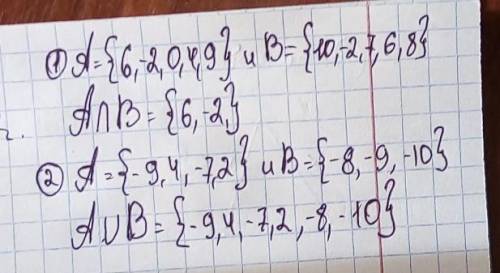 ① A={6,-2,0,4,9} и B={10,-2,7,6,8}
A∩B={6,-2,}
② A={-9,4,-7,2} и B={-8,-9,-10}
A∪B={-9,4,-7,2,-8,-10}